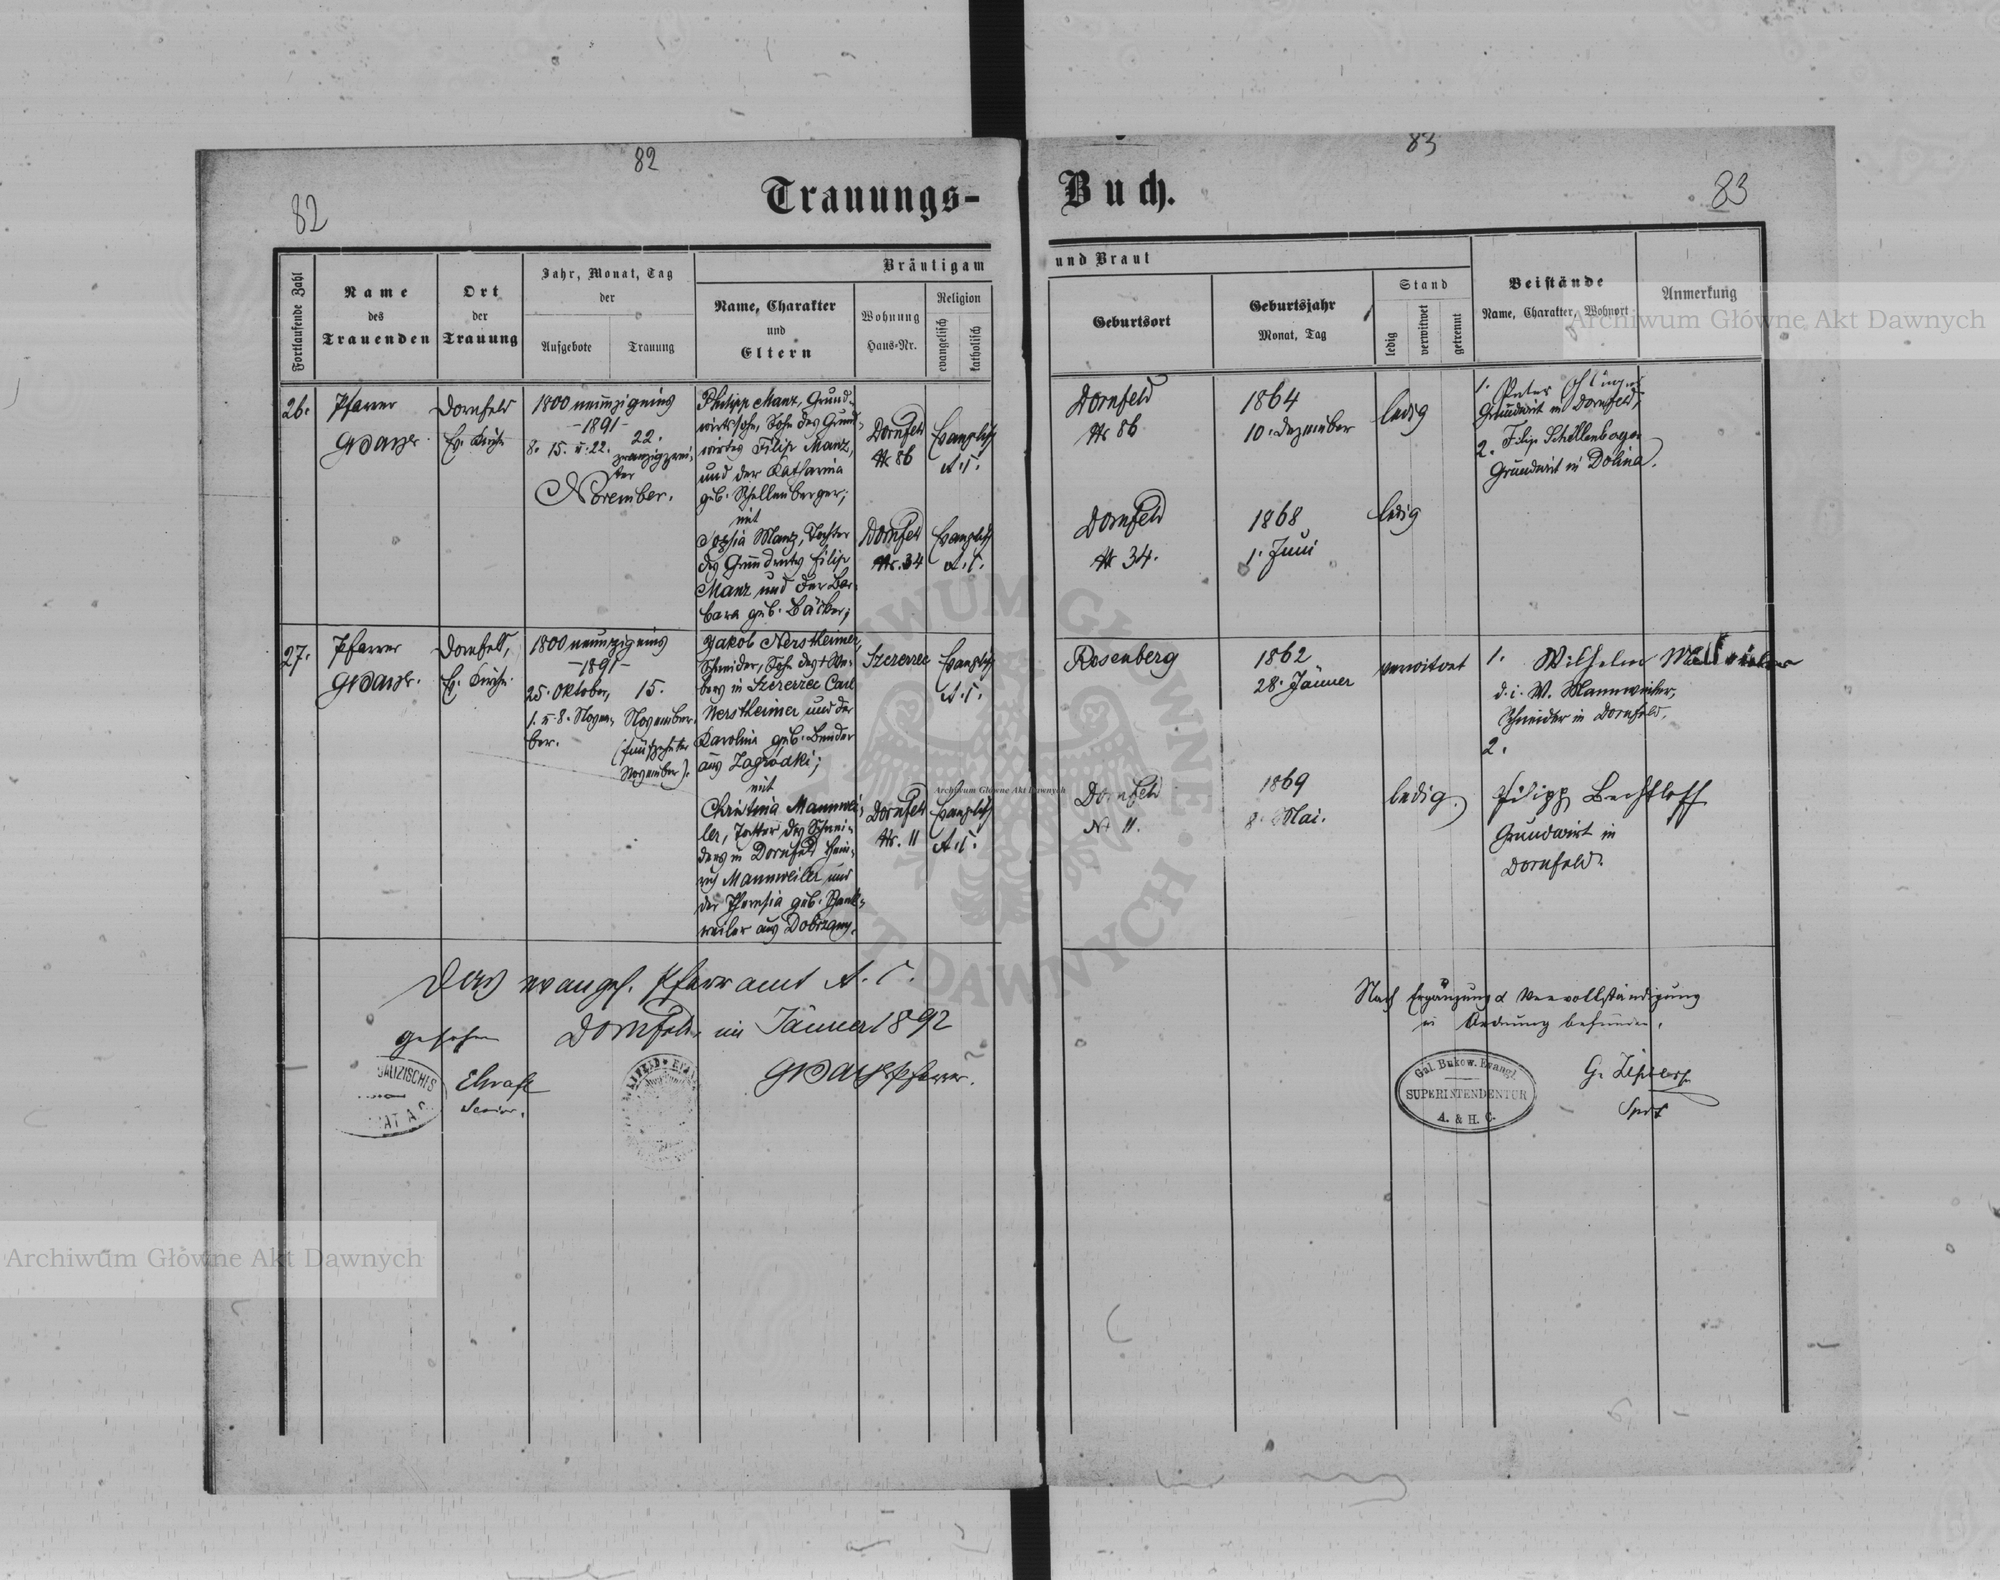 82
83
82
Trauungs-
Buch.
83
Fortlaufende Zahl
Name
des
Trauenden
Ort
der
Trauung
Jahr, Monat, Tag
der
Aufgebote
Trauung
Bräutigam
Name, Charakter
und
Eltern
Wohnung
Haus-Nr.
Religion
evangelisch
katholisch
und Braut
Geburtsort
Geburtsjahr
Monat, Tag
Stand
ledig
verwitwet
getrennt
Beistände
Name, Charakter, Wohnort
Anmerkung
26.
Pfarrer
Dornfeld
Ev. Kirche
1800 neunzigeins
-1891-
8. 15. u. 22.
22.
zwanzigzwei-
ter
November.
Philipp Manz, Grund-
wirtssohn, Sohn des Grund-
wirtes Filip Manz,
und der Katharina
geb. Schellenberger;
mit
Sophia Manz, Tochter
des Grundwirtes Filip
Manz und der Bar-
bara geb. Bäcker;
Dornfeld
Nr. 86
Evangelisch
A. C.
Dornfeld
Nr. 34
Evangelisch
A. C.
Dornfeld
Nr. 86
1864
10. Dezember
ledig
1. Peter
Grundwirt in Dornfeld,
2. Filip Schellenberger
Grundwirt in Dolina.
Dornfeld
Nr. 34.
1868
1. Juni
ledig
27.
Pfarrer
Dornfeld,
Ev. Kirche
1800 neunzigeins
-1891-
25. Oktober,
1. u. 8. Novem-
ber.
15.
November
(fünfzehnter
November).
Jakob Nerstheimer,
Schneider, Sohn des We-
bers in Szczerzec Carl
Nerstheimer und der
Karolina geb. Bender
aus Zagrodki;
mit
Christina Mannwei-
ler, Tochter des Schnei-
ders in Dornfeld Hein-
rich Mannweiler und
der Theresia geb.
weiler aus Dobrzany.
Szczerzec
Evangelisch
A. C.
Dornfeld
Nr. 11
Evangelisch
A. C.
Rosenberg
1862
28. Jänner
verwitwet
1. Wilhelm
d. i. W. Mannweiler,
Schneider in Dornfeld.
2.
Filipp Bechtloff
Grundwirt in
Dornfeld.
Dornfeld
Nr 11.
1869
8. Mai.
ledig.
Das evangel. Pfarramt A. C.
Dornfeld, im Jänner 1892
gesehen
Senior.
Pfarrer.
GALIZISCHES
Nach Ergänzung & Vervollständigung
in Ordnung befunden.
Gal. Bukow. Evangl.
SUPERINTENDENTUR
A. & H. C.
Archiwum Główne Akt Dawnych
Archiwum Główne Akt Dawnych
Archiwum Główne Akt Dawnych